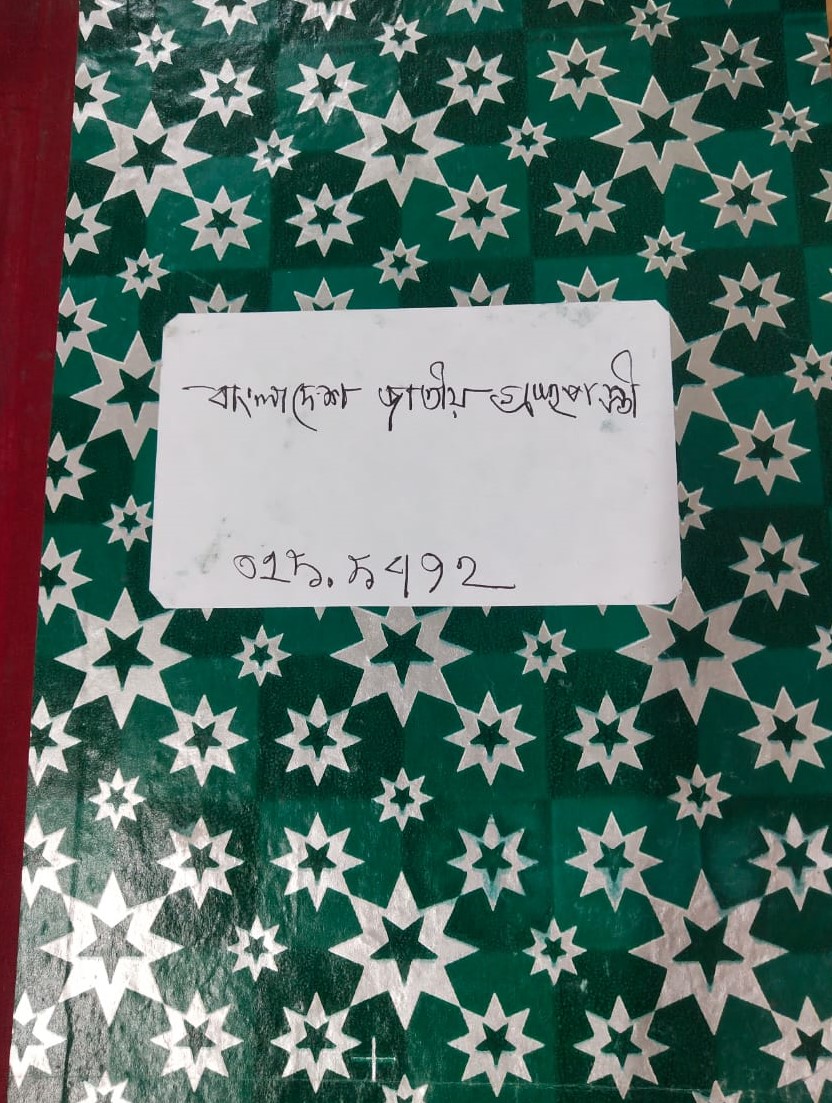 বাংলাদেশ জাতীয় গ্রন্থপঞ্জী
০১৫.৫৪৯২